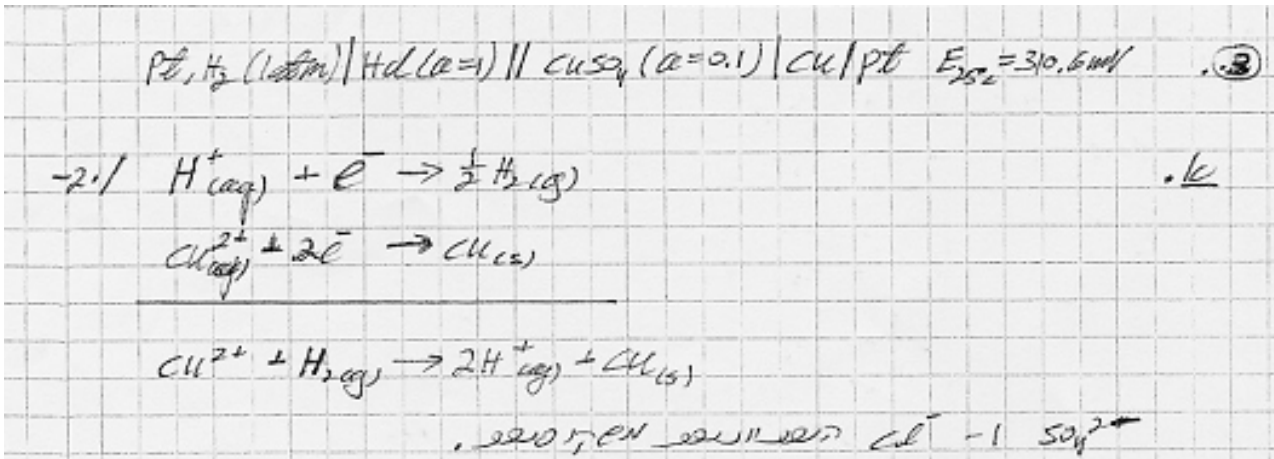 .3 Pt, H₂ (1atm) | HCl (a=1) || CuSO₄ (a=0.1) | Cu | Pt E₂₅c = 310.6mV
.א -2·/ H⁺(aq) + e⁻ → ½ H₂(g)
Cu²⁺(aq) + 2e⁻ → Cu(s)
Cu²⁺ + H₂(g) → 2H⁺(aq) + Cu(s)
SO₄²⁻ ו- Cl⁻